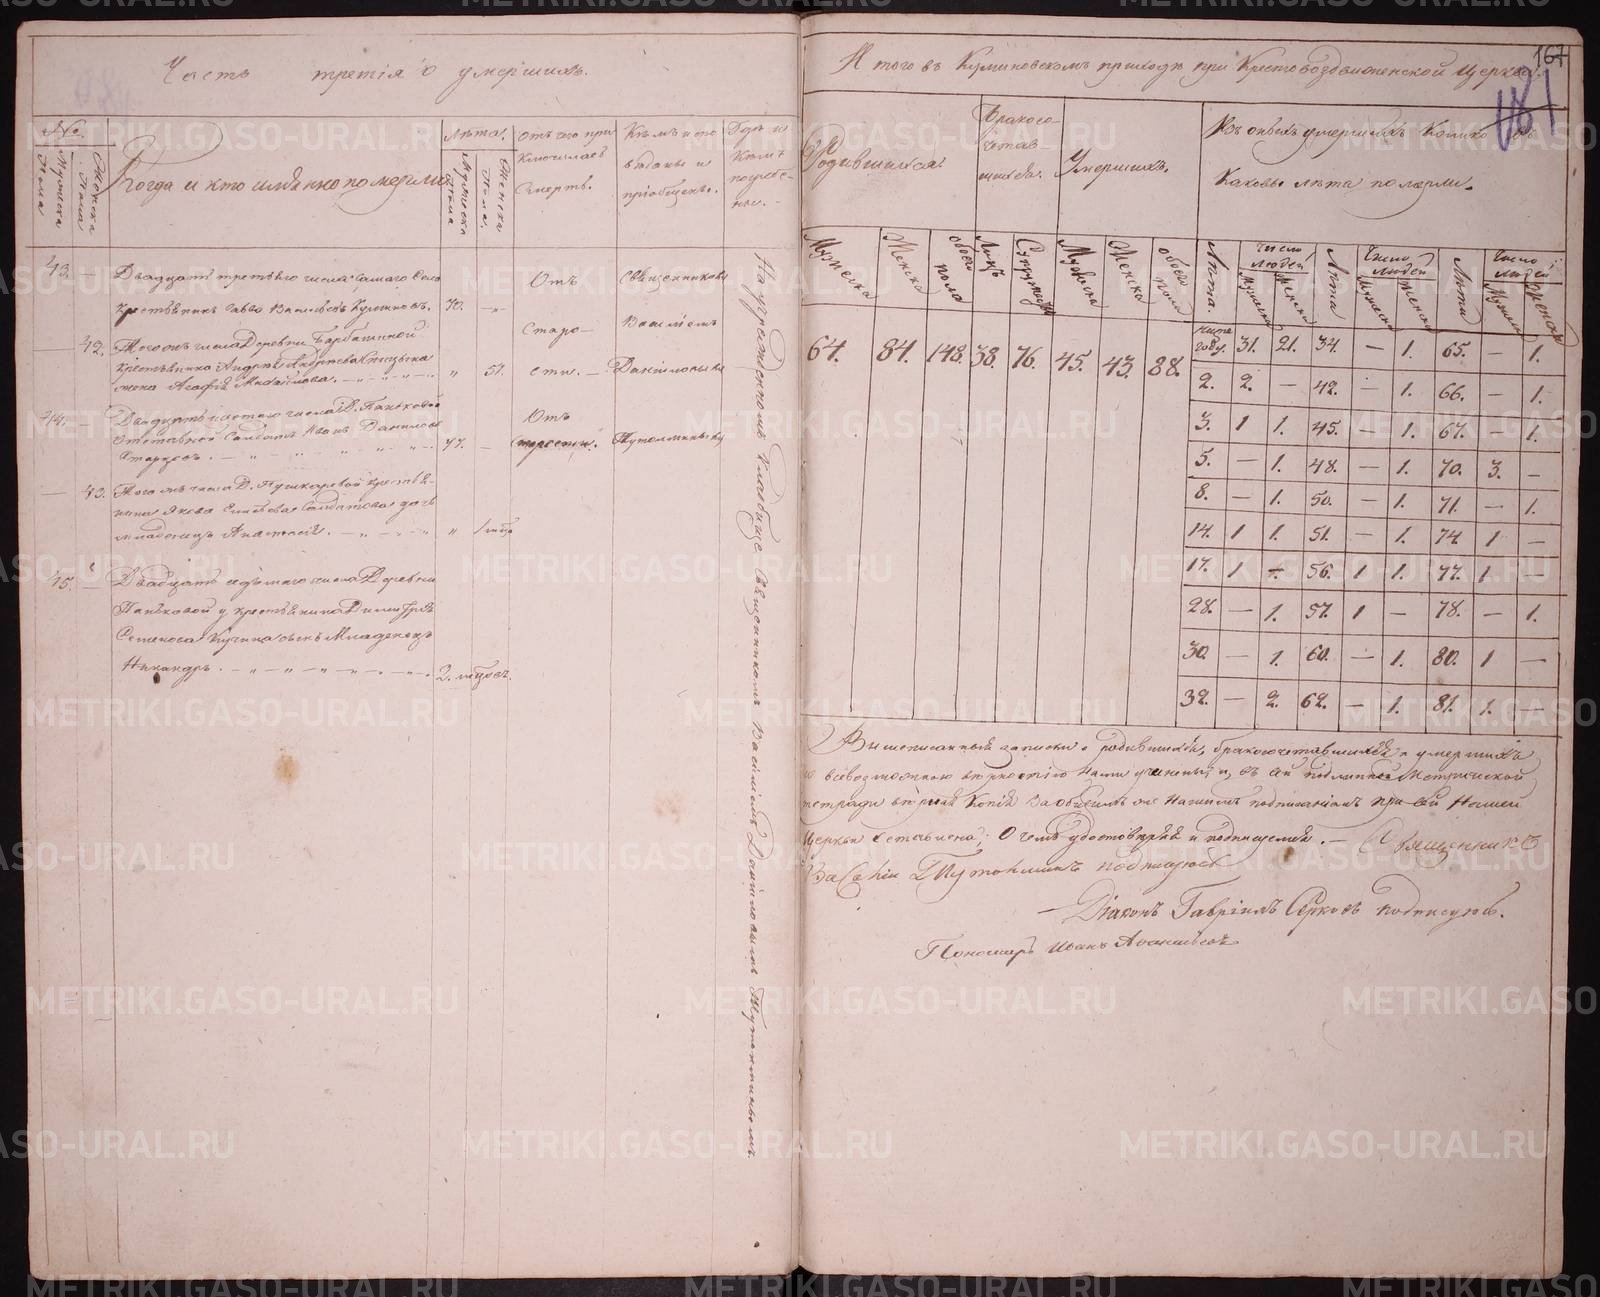 Часть третія о умершихъ.
№.
Мужеска пола
Женска пола
Когда и кто имянно померли
Лѣта.
Мужеска пола
Женска пола.
Отъ чего приключилась смерть.
Кѣмъ исповѣданы и пріобщены.
Гдѣ и кѣмъ погребены.
43. —
Двадцать третьяго числа сего Села
крестьянинъ Савва Васильевъ Куликовъ.
70. —„—
Отъ
Старо—
сти. —
Священникомъ
Василіемъ
Даніловымъ
Тутолминымъ
42.
Того жъ числа Деревни
крестьянина Андрея Андреева
жена Агафія Михайлова. — „ — „ — „ —
„ 57.
44.
Двадцать числа Д. Паньковой
отставной Солдатъ Иванъ Даниловъ
Старцовъ. — „ „ „
77. —
Отъ
старости.
— 43.
Того жъ числа Д. Пушкаревой крестья-
нина Якова Солдатова дочь
младенецъ Анастасія. — „ — „ — „
„
45. —
Двадцать седьмаго числа Деревни
Паньковой у крестьянина Димитрія
Семенова Кучина сынъ Младенецъ
Никандръ. — „ — „ — „ — „ —
2. мѣсес.
На учрежденномъ кладбище Священникомъ Василіемъ Даніловымъ Тутолминымъ.
Итого въ приходѣ при Крестовоздвиженской Церкви.
167
181
Родившихся
Бракосочетавшихся.
Умершихъ.
Въ оныхъ умершихъ колико въ
каковы лѣта померли.
Мужеска Женска обоего пола Лицъ Супружествъ Мужеска Женска обоего пола
Лѣта. Число людей Мужеска Женска Лѣта Число людей Мужеска Женска Лѣта Число людей Мужеска Женска
64. 84. 148. 38. 76. 45. 43. 88.
году. 31. 21. 34. — 1. 65. — 1.
2. 2. — 42. — 1. 66. — 1.
3. 1 1. 45. — 1. 67. — 1.
5. — 1. 48. — 1. 70. 3. —
8. — 1. 50. — 1. 71. — 1.
14. 1 1. 51. — 1. 74. 1 —
17. 1 — 56. 1 1. 77. 1 —
28. — 1. 57. 1 — 78. — 1.
30. — 1. 60. — 1. 80. 1 —
32. — 2. 62. — 1. 81. 1. —
Вышеписанныя записки о родившихся, бракосочетавшихся и умершихъ
со всевозможною вѣрностію нами учинены, и съ сей подлинной Метрической
тетради вѣрная копія за общимъ же нашимъ подписаніемъ при сей нашей
Церкви оставлена; о чемъ удостовѣряя и подписуемся. — Священникъ
Василій Тутолминъ подписуюсь
Діаконъ Гавріилъ Серковъ подписуюсь.
Пономарь Иванъ
METRIKI.GASO-URAL.RU